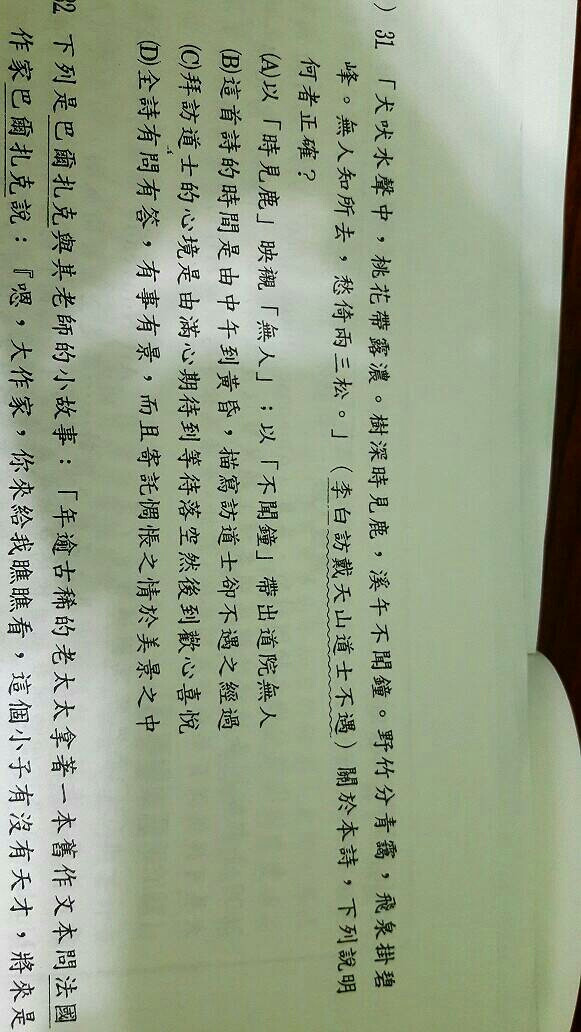 ) 31 「犬吠水聲中，桃花帶露濃。樹深時見鹿，溪午不聞鐘。野竹分青靄，飛泉掛碧
峰。無人知所去，愁倚兩三松。」（李白訪戴天山道士不遇）關於本詩，下列說明
何者正確？
(A)以「時見鹿」映襯「無人」；以「不聞鐘」帶出道院無人
(B)這首詩的時間是由中午到黃昏，描寫訪道士卻不遇之經過
(C)拜訪道士的心境是由滿心期待到等待落空然後到歡心喜悅
(D)全詩有問有答，有事有景，而且寄託惆悵之情於美景之中
32 下列是巴爾扎克與其老師的小故事：「年逾古稀的老太太拿著一本舊作文本問法國
作家巴爾扎克說：『嗯，大作家，你來給我瞧瞧看，這個小子有沒有天才，將來是